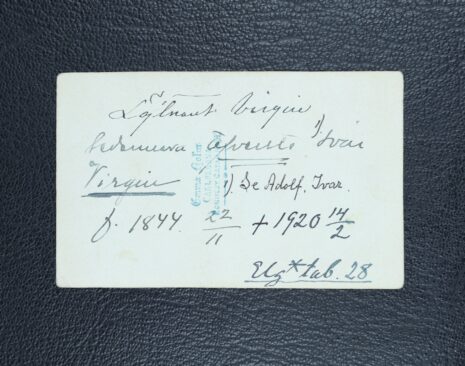 Löjtnant Virgin
Sedermera Överste ¹) Ivar
Virgin
1) Se Adolf, Ivar.
f. 1844 22/11 + 1920 14/2
Elg* tab. 28
Emma